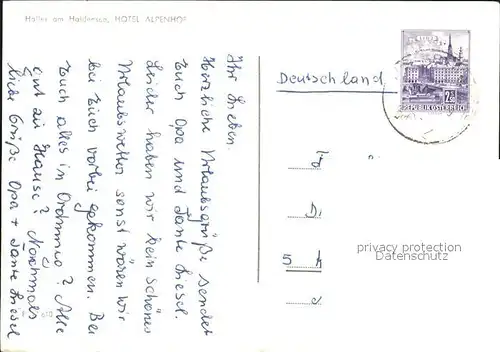 Haller am Haldensee, HOTEL ALPENHOF
Ihr Lieben.
Herzliche Urlaubsgrüße sendet
Euch Opa und Tante Liesel.
Leider haben wir kein schönes
Urlaubswetter sonst wären wir
bei Euch vorbei gekommen. Bei
Euch alles in Ordnung? Alle
gut zu Hause? Nochmals
liebe Grüße Opa + Tante Liesel
Deutschland
REPUBLIK ÖSTERREICH
5
privacy protection
Datenschutz